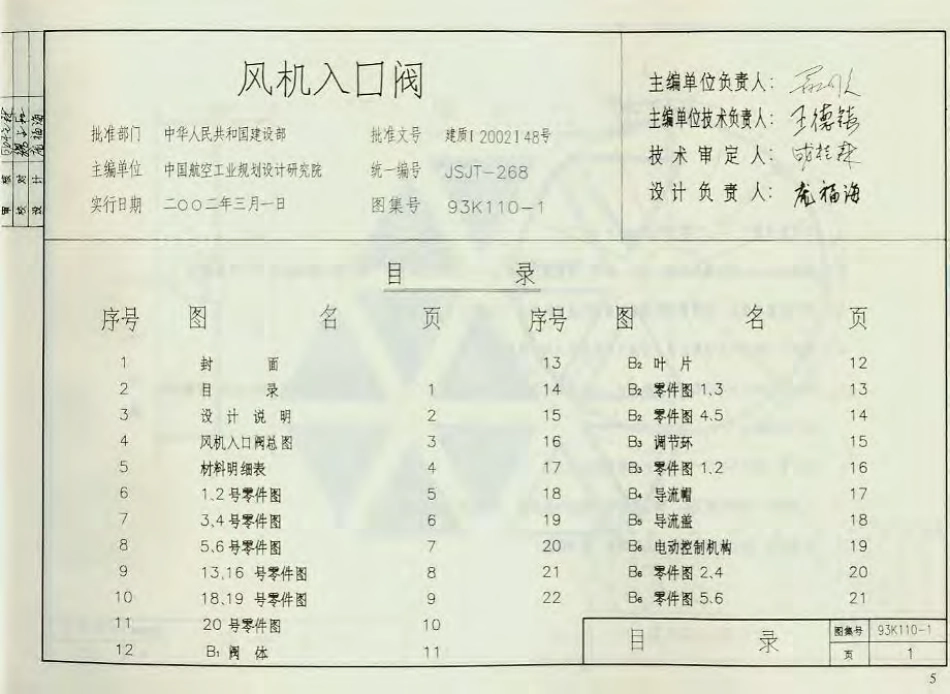 风机入口阀
批准部门 中华人民共和国建设部 批准文号 建质[2002]148号
主编单位 中国航空工业规划设计研究院 统一编号 JSJT-268
实行日期 二〇〇二年三月一日 图集号 93K110-1
主编单位负责人:
主编单位技术负责人: 王德镇
技术审定人:
设计负责人: 庞福海
审核
校对
设计
目 录
序号 图 名 页 序号 图 名 页
1 封 面 13 B2 叶片 12
2 目 录 1 14 B2 零件图 1.3 13
3 设计说明 2 15 B2 零件图 4.5 14
4 风机入口阀总图 3 16 B3 调节环 15
5 材料明细表 4 17 B3 零件图 1.2 16
6 1.2号零件图 5 18 B4 导流帽 17
7 3.4号零件图 6 19 B5 导流盖 18
8 5.6号零件图 7 20 B6 电动控制机构 19
9 13,16 号零件图 8 21 B6 零件图 2.4 20
10 18,19 号零件图 9 22 B6 零件图 5.6 21
11 20 号零件图 10
12 B1 阀 体 11
目 录 图集号 93K110-1
页 1
5